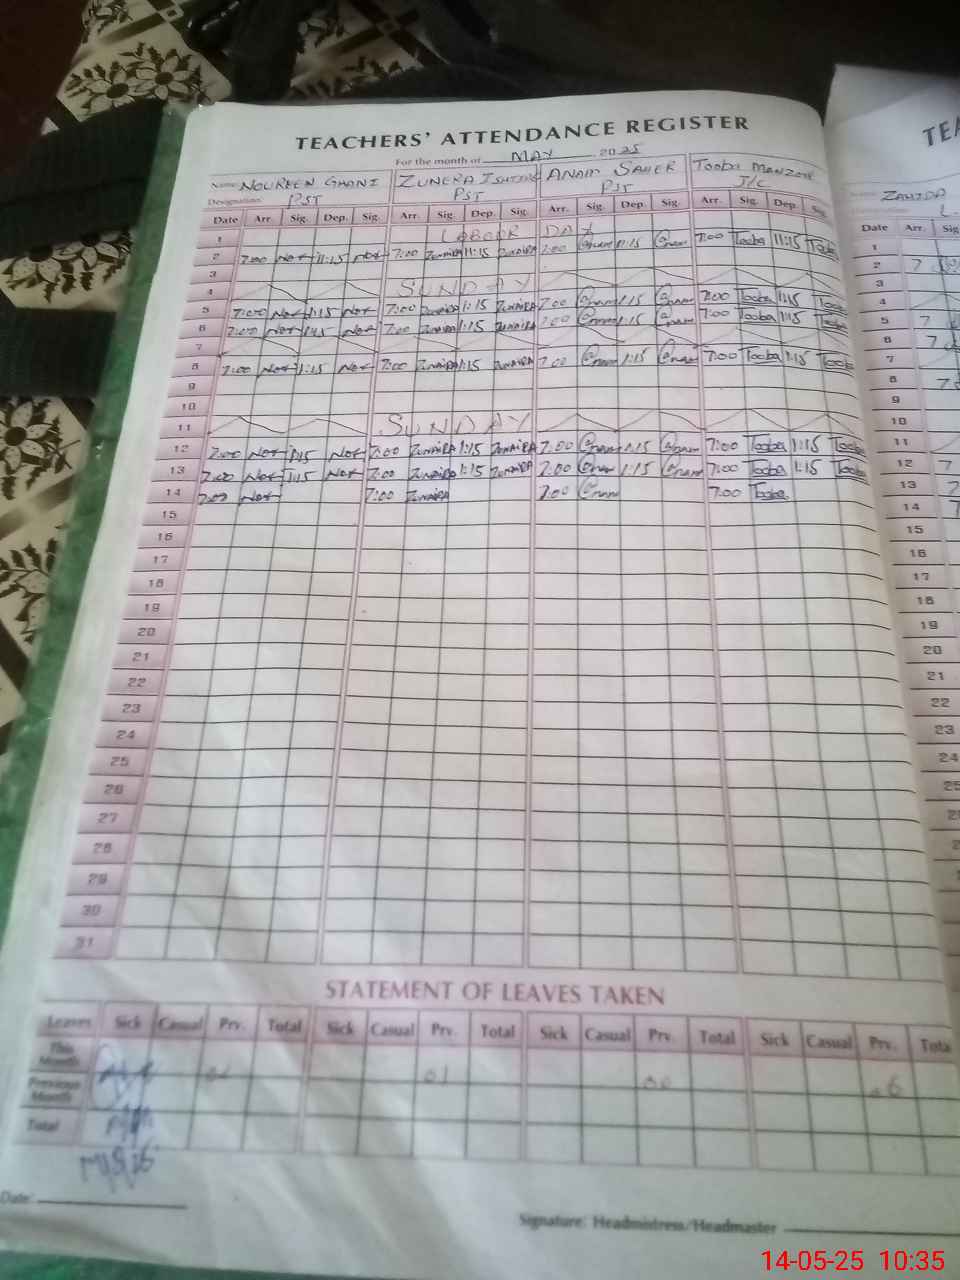 TEACHERS' ATTENDANCE REGISTER
TEA
For the month of MAY 2025
Name NOUREEN GHANI ZUNERA ISHTIAQ ANAM SAHER TOOBA MANZOOR
Name ZAHIDA
Designation PST PST PST J/C
Date Arr. Sig. Dep. Sig. Arr. Sig. Dep. Sig. Arr. Sig. Dep. Sig. Arr. Sig. Dep. Sig. Date Arr. Sig
1 LABOUR DAY 1
2 7:00 Nor 11:15 Nor 7:00 Zunaira 11:15 Zunaira 7:00 @nam 11:15 @nam 7:00 Tooba 11:15 Tooba 2 7
3 3
4 SUNDAY 4
5 7:00 Nor 1:15 Nor 7:00 Zunaira 1:15 Zunaira 7:00 @nam 1:15 @nam 7:00 Tooba 1:15 Tooba 5 7
6 7:00 Nor 1:15 Nor 7:00 Zunaira 1:15 Zunaira 7:00 @nam 1:15 @nam 7:00 Tooba 1:15 Tooba 6 7
7 7
8 7:00 Nor 1:15 Nor 7:00 Zunaira 1:15 Zunaira 7:00 @nam 1:15 @nam 7:00 Tooba 1:15 Tooba 8 7
9 9
10 10
11 SUNDAY 11
12 7:00 Nor 1:15 Nor 7:00 Zunaira 1:15 Zunaira 7:00 @nam 1:15 @nam 7:00 Tooba 1:15 Tooba 12 7
13 7:00 Nor 1:15 Nor 7:00 Zunaira 1:15 Zunaira 7:00 @nam 1:15 @nam 7:00 Tooba 1:15 Tooba 13 7
14 7:00 Nor 7:00 Zunaira 7:00 @nam 7:00 Tooba 14 7
15 15
16 16
17 17
18 18
19 19
20 20
21 21
22 22
23 23
24 24
25 25
26
27
28
29
30
31
STATEMENT OF LEAVES TAKEN
Leaves Sick Casual Prv. Total Sick Casual Prv. Total Sick Casual Prv. Total Sick Casual Prv. Tota
This Month
Previous Month 01 00 06
Total
Date:
Signature: Headmistress/Headmaster
14-05-25 10:35